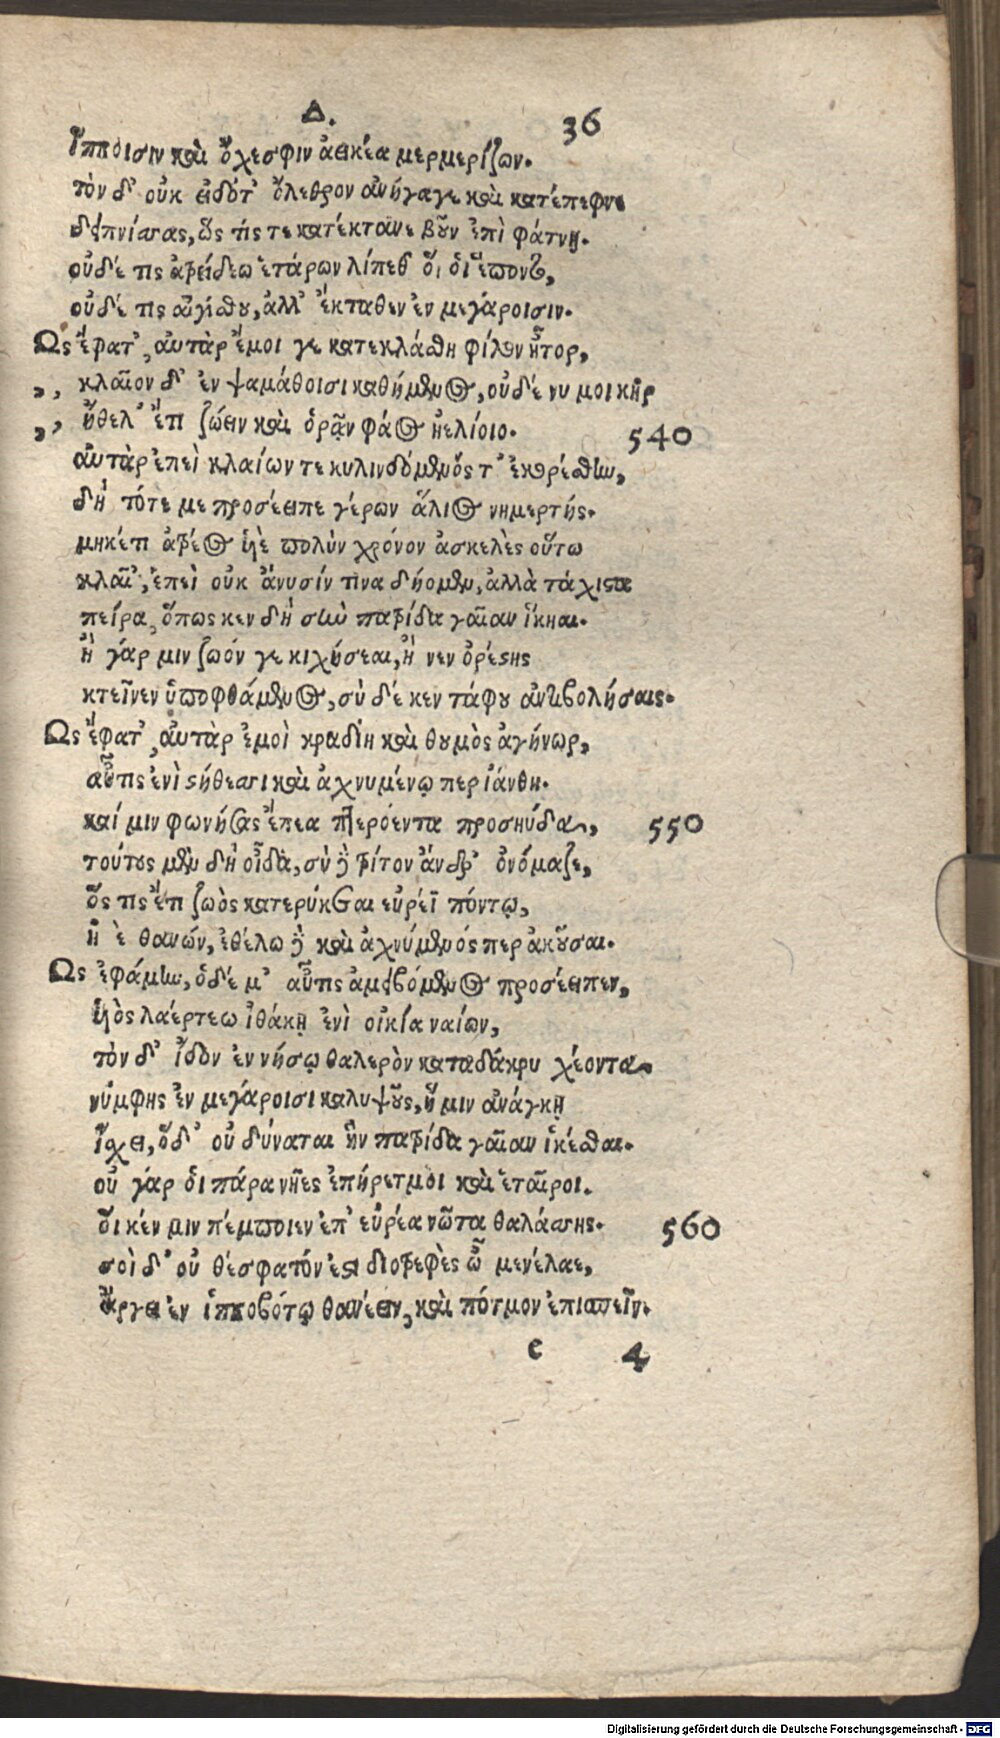 Δ. 36
ἵπποισιν καὶ ὄχεσφιν ἀεικέα μερμερίζων.
τὸν δ' οὐκ εἰδότ' ὄλεθρον ἀνήγαγε καὶ κατέπεφνε
δειπνίσσας, ὥς τίς τε κατέκτανε βοῦν ἐπὶ φάτνῃ.
οὐδέ τις ἀτρείδεω ἑτάρων λίπεθ' οἵ, οἱ ἕποντο,
οὐδέ τις αἰγίσθου, ἀλλ' ἔκταθεν ἐν μεγάροισιν.
Ως ἔφατ', αὐτὰρ ἔμοι γε κατεκλάσθη φίλον ἦτορ,
,, κλαῖον δ' ἐν ψαμάθοισι καθήμενος, οὐδέ νυ μοι κῆρ
,, ἤθελ' ἔτι ζώειν καὶ ὁρᾷν φάος ἠελίοιο. 540
αὐτὰρ ἐπεὶ κλαίων τε κυλινδόμενός τ' ἐκορέσθην,
δὴ τότε με προσέειπε γέρων ἅλιος νημερτής.
μηκέτι ἀτρέος ὑὲ πολὺν χρόνον ἀσκελὲς οὕτω
κλαῖ', ἐπεὶ οὐκ ἄνυσίν τινα δήομεν, ἀλλὰ τάχιστα
πείρα, ὅπως κεν δὴ σὴν πατρίδα γαῖαν ἵκηαι.
ἢ γάρ μιν ζωόν γε κιχήσεαι, ἤ κεν ὀρέστης
κτεῖνεν ὑποφθάμενος, σὺ δέ κεν τάφου ἀντιβολήσαις.
Ως ἔφατ', αὐτὰρ ἐμοὶ κραδίη καὶ θυμὸς ἀγήνωρ,
αὖτις ἐνὶ στήθεσσι καὶ ἀχνυμένῳ περ ἰάνθη.
καί μιν φωνήσας ἔπεα πτερόεντα προσηύδαν, 550
τούτους μὲν δὴ οἶδα, σὺ δὲ τρίτον ἄνδρ' ὀνόμαζε,
ὅς τις ἔτι ζωὸς κατερύκεται εὐρέϊ πόντῳ,
ἠὲ θανών, ἐθέλω δὲ καὶ ἀχνύμενός περ ἀκοῦσαι.
Ως ἐφάμην, ὁ δέ μ' αὖτις ἀμειβόμενος προσέειπεν,
ὑὸς λαέρτεω ἰθάκῃ ἐνὶ οἰκία ναίων,
τὸν δ' ἴδον ἐν νήσῳ θαλερὸν καταδάκρυ χέοντα.
νύμφης ἐν μεγάροισι καλυψοῦς, ἥ μιν ἀνάγκῃ
ἴσχει, ὅδ' οὐ δύναται ἣν πατρίδα γαῖαν ἱκέσθαι.
οὐ γάρ οἱ πάρα νῆες ἐπήρετμοι καὶ ἑταῖροι.
οἵ κέν μιν πέμποιεν ἐπ' εὐρέα νῶτα θαλάσσης. 560
σοὶ δ' οὐ θέσφατόν ἐστι διοτρεφὲς ὦ μενέλαε,
ἄργει ἐν ἱπποβότῳ θανέειν, καὶ πότμον ἐπισπεῖν.
e 4
Digitalisierung gefördert durch die Deutsche Forschungsgemeinschaft · DFG